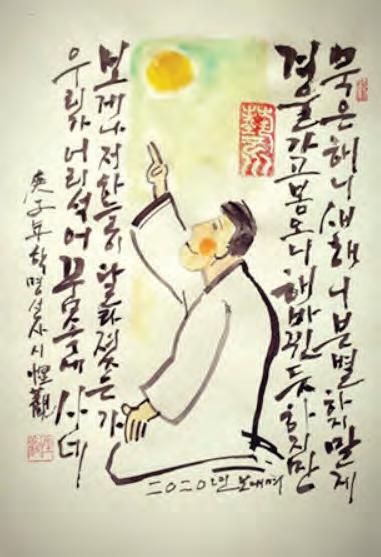 묵은해니 새해니 분별하지 말게
겨울가고 봄오니 해바뀐듯 하지만
보게나 저하늘이 달라졌는가
우리가 어리석어 꿈속에 사네
庚子年 학명선사 시 惺觀
二〇二〇년 보내며